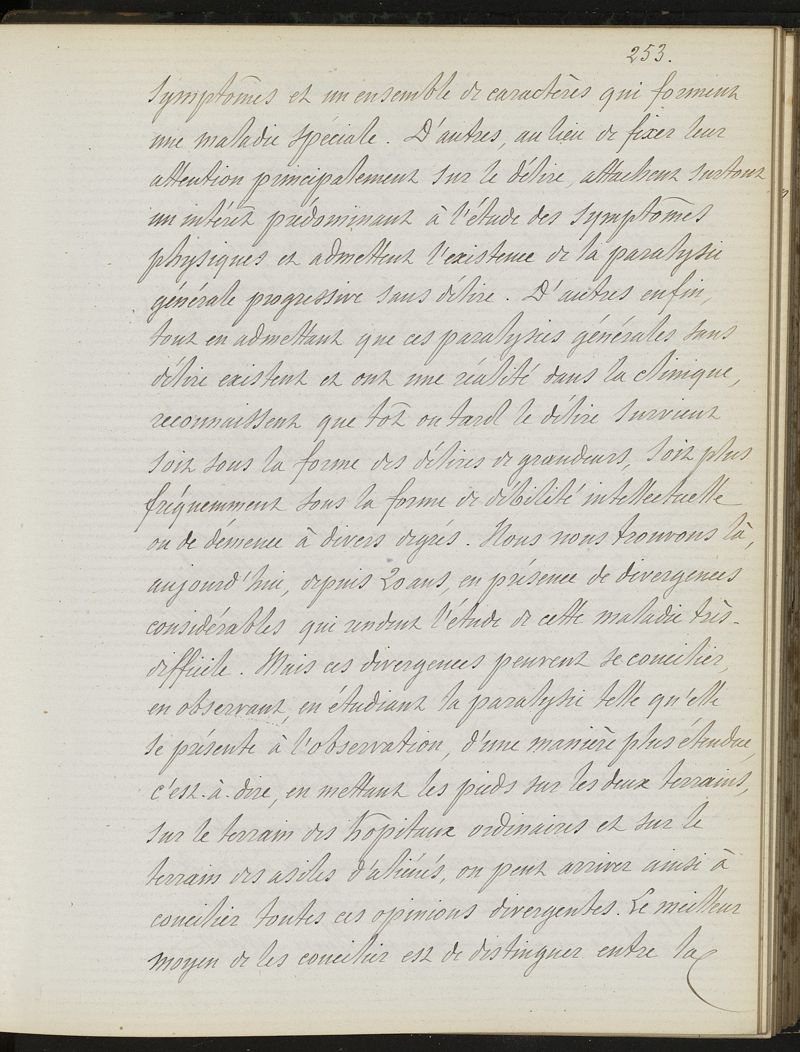 253.
symptômes et un ensemble de caractères qui forment
une maladie spéciale. D'autres, au lieu de fixer leur
attention principalement sur le délire, attachent surtout
un intérêt prédominant à l'étude des symptômes
physiques et admettent l'existence de la paralysie
générale progressive sans délire. D'autres enfin,
tout en admettant que ces paralysies générales sans
délire existent et ont une réalité dans la clinique,
reconnaissent que tôt ou tard le délire survient
soit sous la forme des délires de grandeurs, soit plus
fréquemment sous la forme de débilité intellectuelle
ou de démence à divers degrés. Nous nous trouvons là,
aujourd'hui, depuis 20 ans, en présence de divergences
considérables qui rendent l'étude de cette maladie très-
difficile. Mais ces divergences peuvent se concilier,
en observant, en étudiant la paralysie telle qu'elle
se présente à l'observation, d'une manière plus étendue,
c'est-à-dire, en mettant les pieds sur les deux terrains,
sur le terrain des hôpitaux ordinaires et sur le
terrain des asiles d'aliénés, on peut arriver ainsi à
concilier toutes ces opinions divergentes. Le meilleur
moyen de les concilier est de distinguer entre la